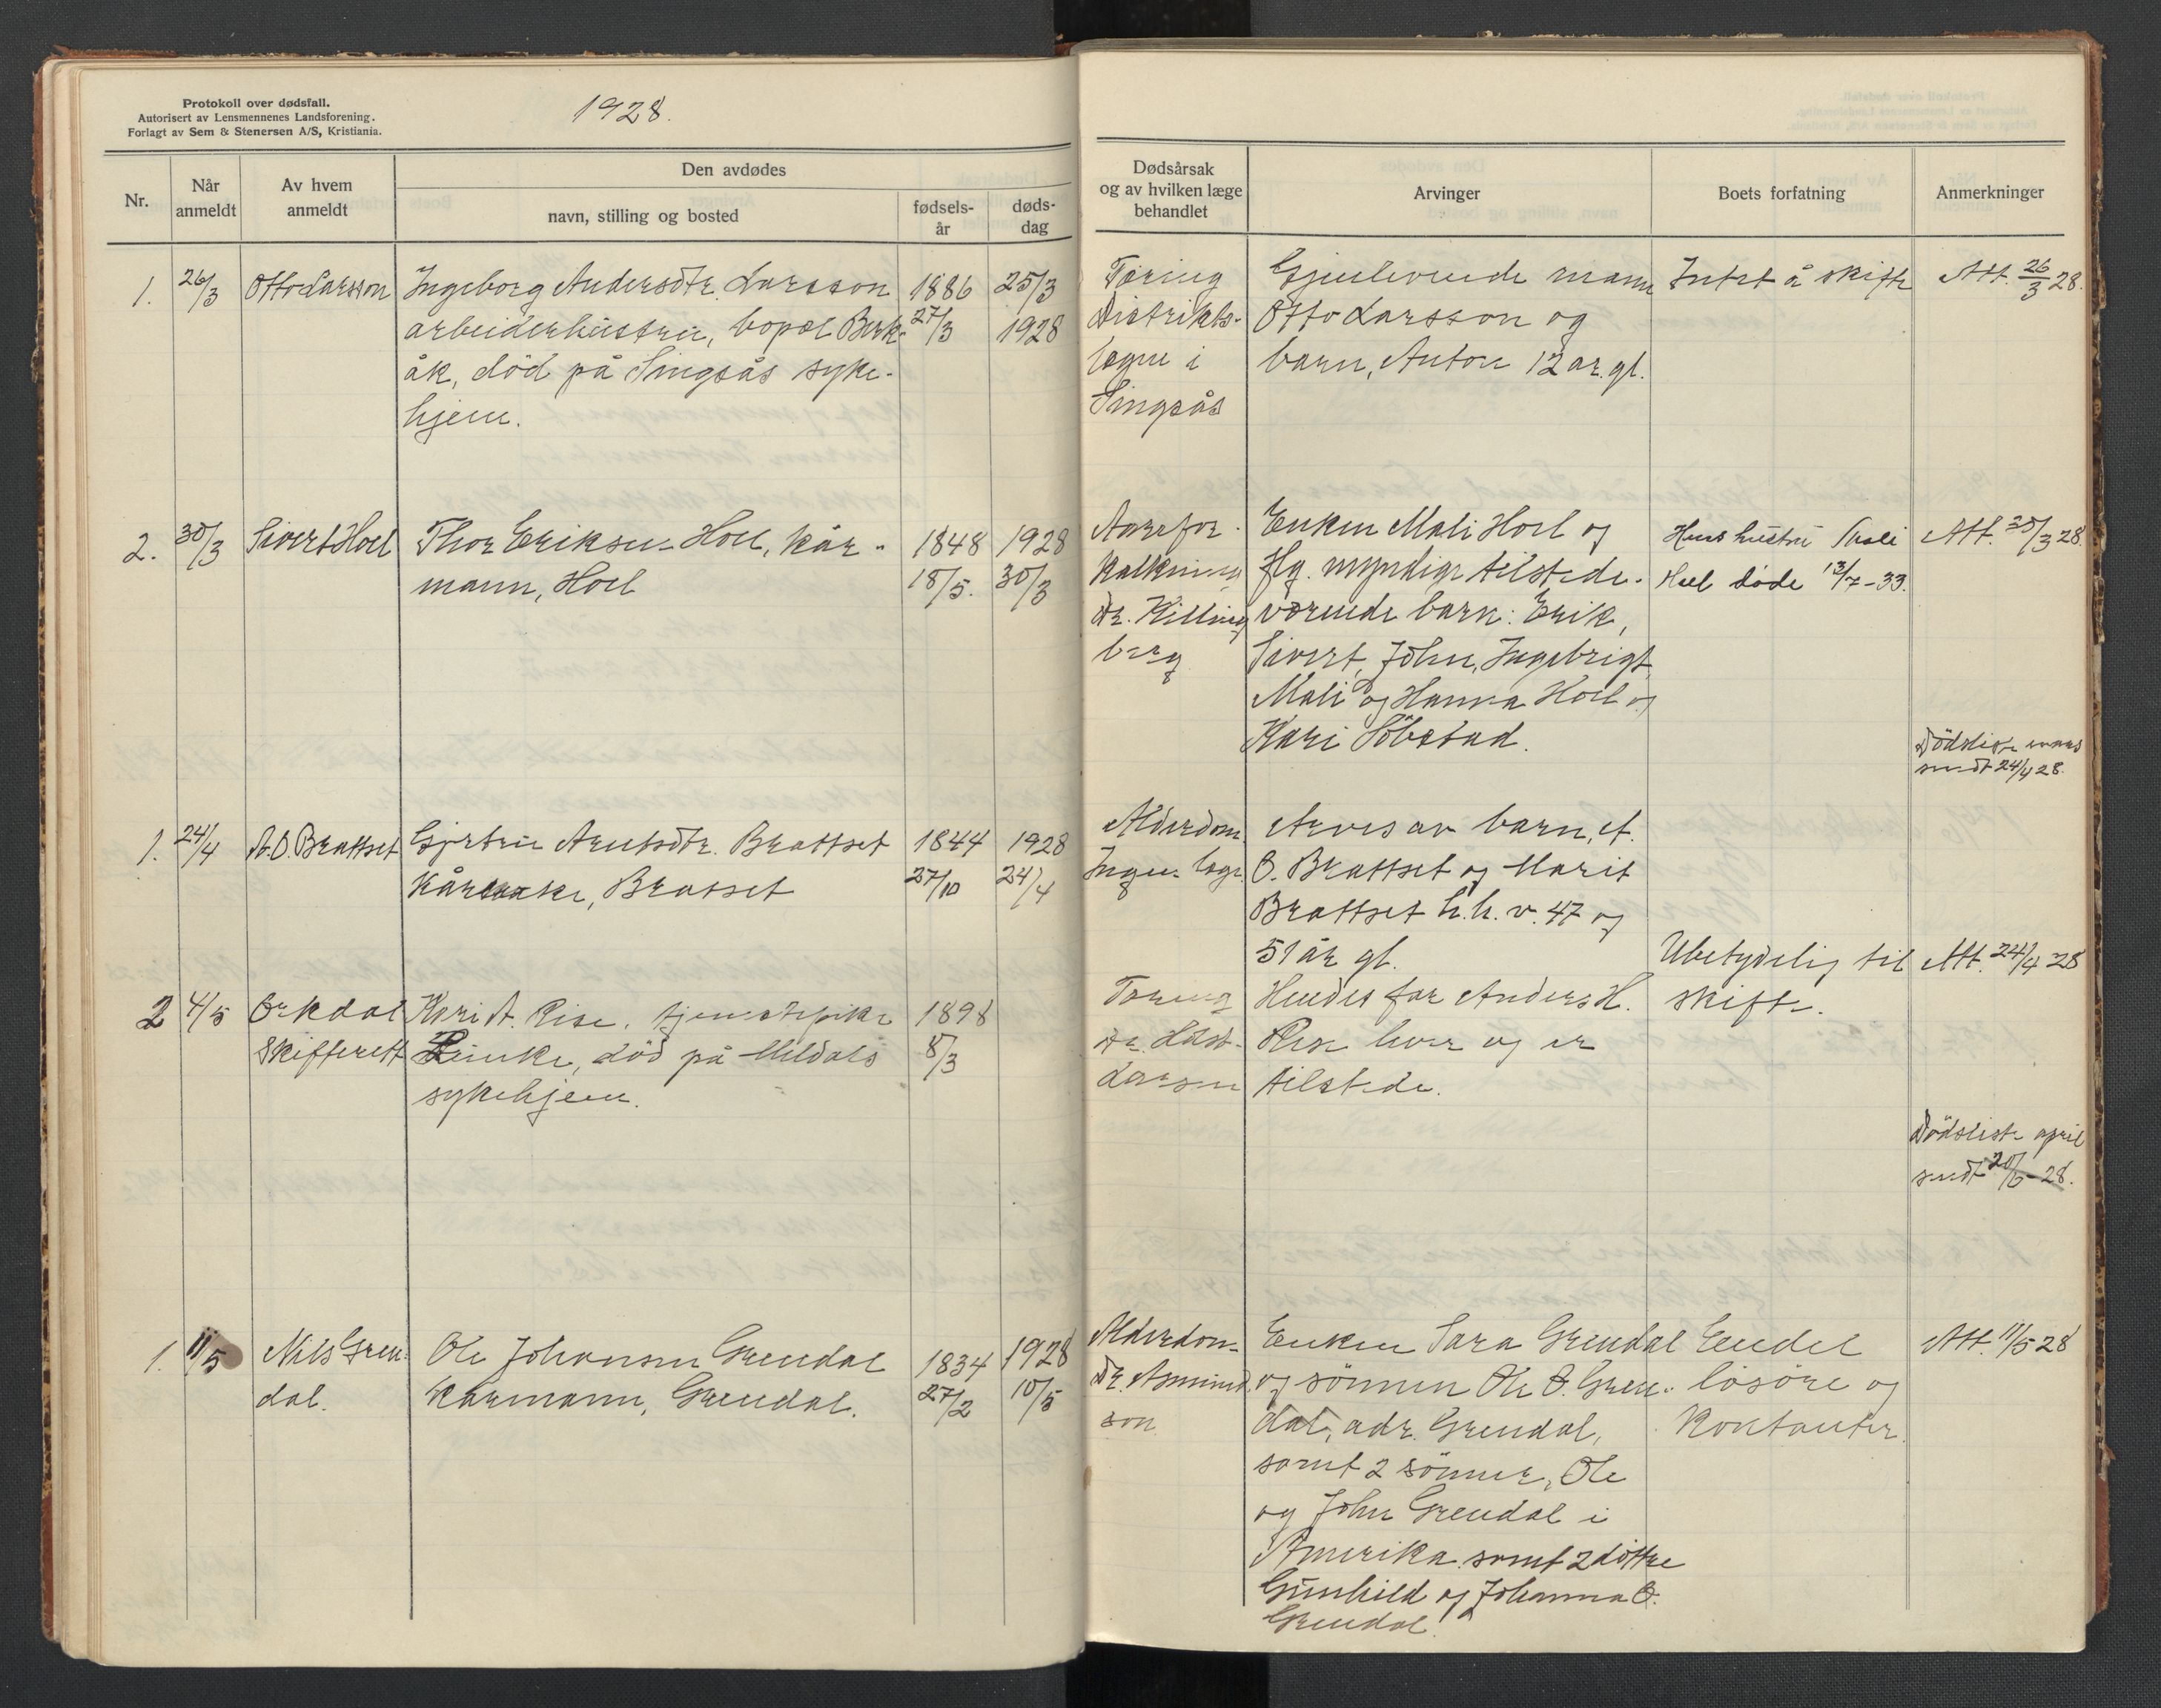 Protokoll over dødsfall.
Autorisert av Lensmennenes Landsforening.
Forlagt av Sem & Stenersen A/S, Kristiania.
1928.
Nr.
Når anmeldt
Av hvem anmeldt
Den avdødes
navn, stilling og bosted
fødsels-år
døds-dag
Dødsårsak og av hvilken læge behandlet
Arvinger
Boets forfatning
Anmerkninger
1.
26/3
Otto Larsson
Ingeborg Andersdtr. Larsson
arbeiderhustru, bopæl Berk-
åk, död på Singsås syke-
hjem.
1886
27/3
25/3
1928
Tæring
Distrikts-
lægen i
Singsås
Gjenlevende mann
Otto Larsson og
barn, Anton 12 år. gl.
Intet å skifte
Att. 26/3 28.
2.
30/3
Sivert Hoel
Thor Eriksen Hoel, kår-
mann, Hoel
1848
18/5.
1928
30/3
Aarefor-
kalkning
Dr. Killing
berg
Enken Mali Hoel og
flg. myndige tilstede-
værende barn: Erik,
Sivert, John, Ingebrigt,
Mali og Hanna Hoel og
Kari Söbstad.
Hans hustru Mali
Hoel døde 13/7-33.
Att. 30/3 28.
Dödsliste mars
sendt 24/4 28.
1.
24/4
A. O. Brattset
Gjertru Arntsdtr. Brattset
Kårenke, Brattset
1844
27/10
1928
24/4
Alderdom
Ingen læge
Arves av barn, A.
O. Brattset og Marit
Brattset h.h.v. 47 og
51 år gl.
2
4/5
Orkdal
Skifterett
Kari A. Rise, tjenestepike
död på Meldals
sykehjem.
1898
8/3
Tæring
Dr.
Larsen
Hendes far Anders H.
Rise lever og er
tilstede.
Ubetydelig til
skifte.
Att. 24/4 28
Dödsliste april
sendt 20/6-28.
1.
11/5
Nils Gren-
dal.
Ole Johansen Grendal
Kårmann, Grendal.
1834
27/2
1928
10/5
Alderdom
Dr. Asmund
son
Enken Sara Grendal
og sönnen Ole O. Gren-
dal, adr. Grendal,
samt 2 sönner, Ole
og John Grendal i
Amerika samt 2 döttre
Gunhild og Johanna O.
Grendal.
Endel
lösöre og
Kontanter.
Att. 11/5 28